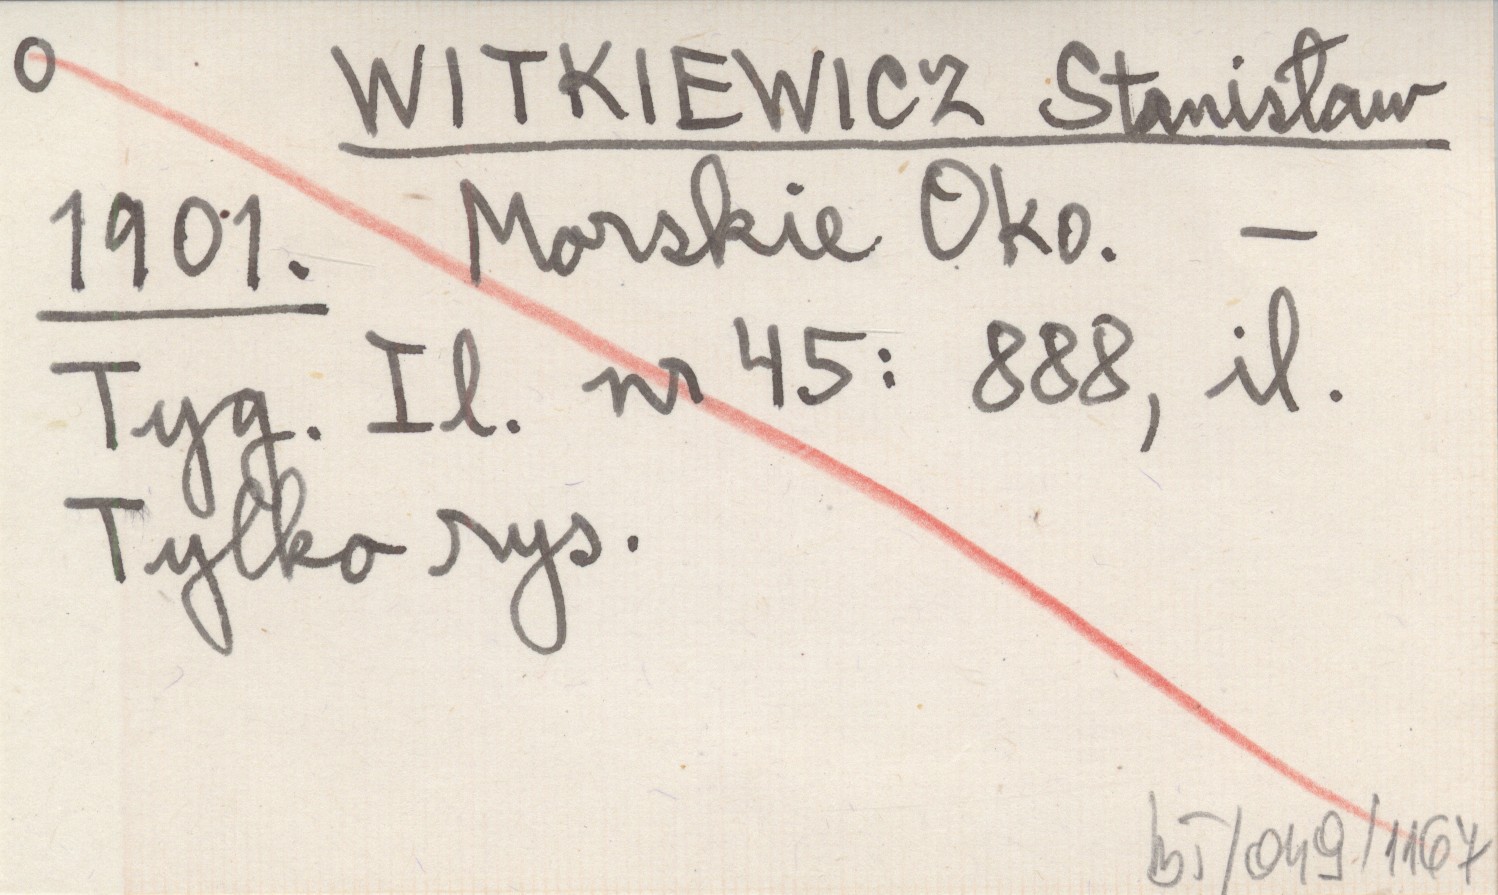 O WITKIEWICZ Stanisław
1901. Morskie Oko. —
Tyg. Il. nr 45: 888, il.
Tylko rys.
bī/049/1167